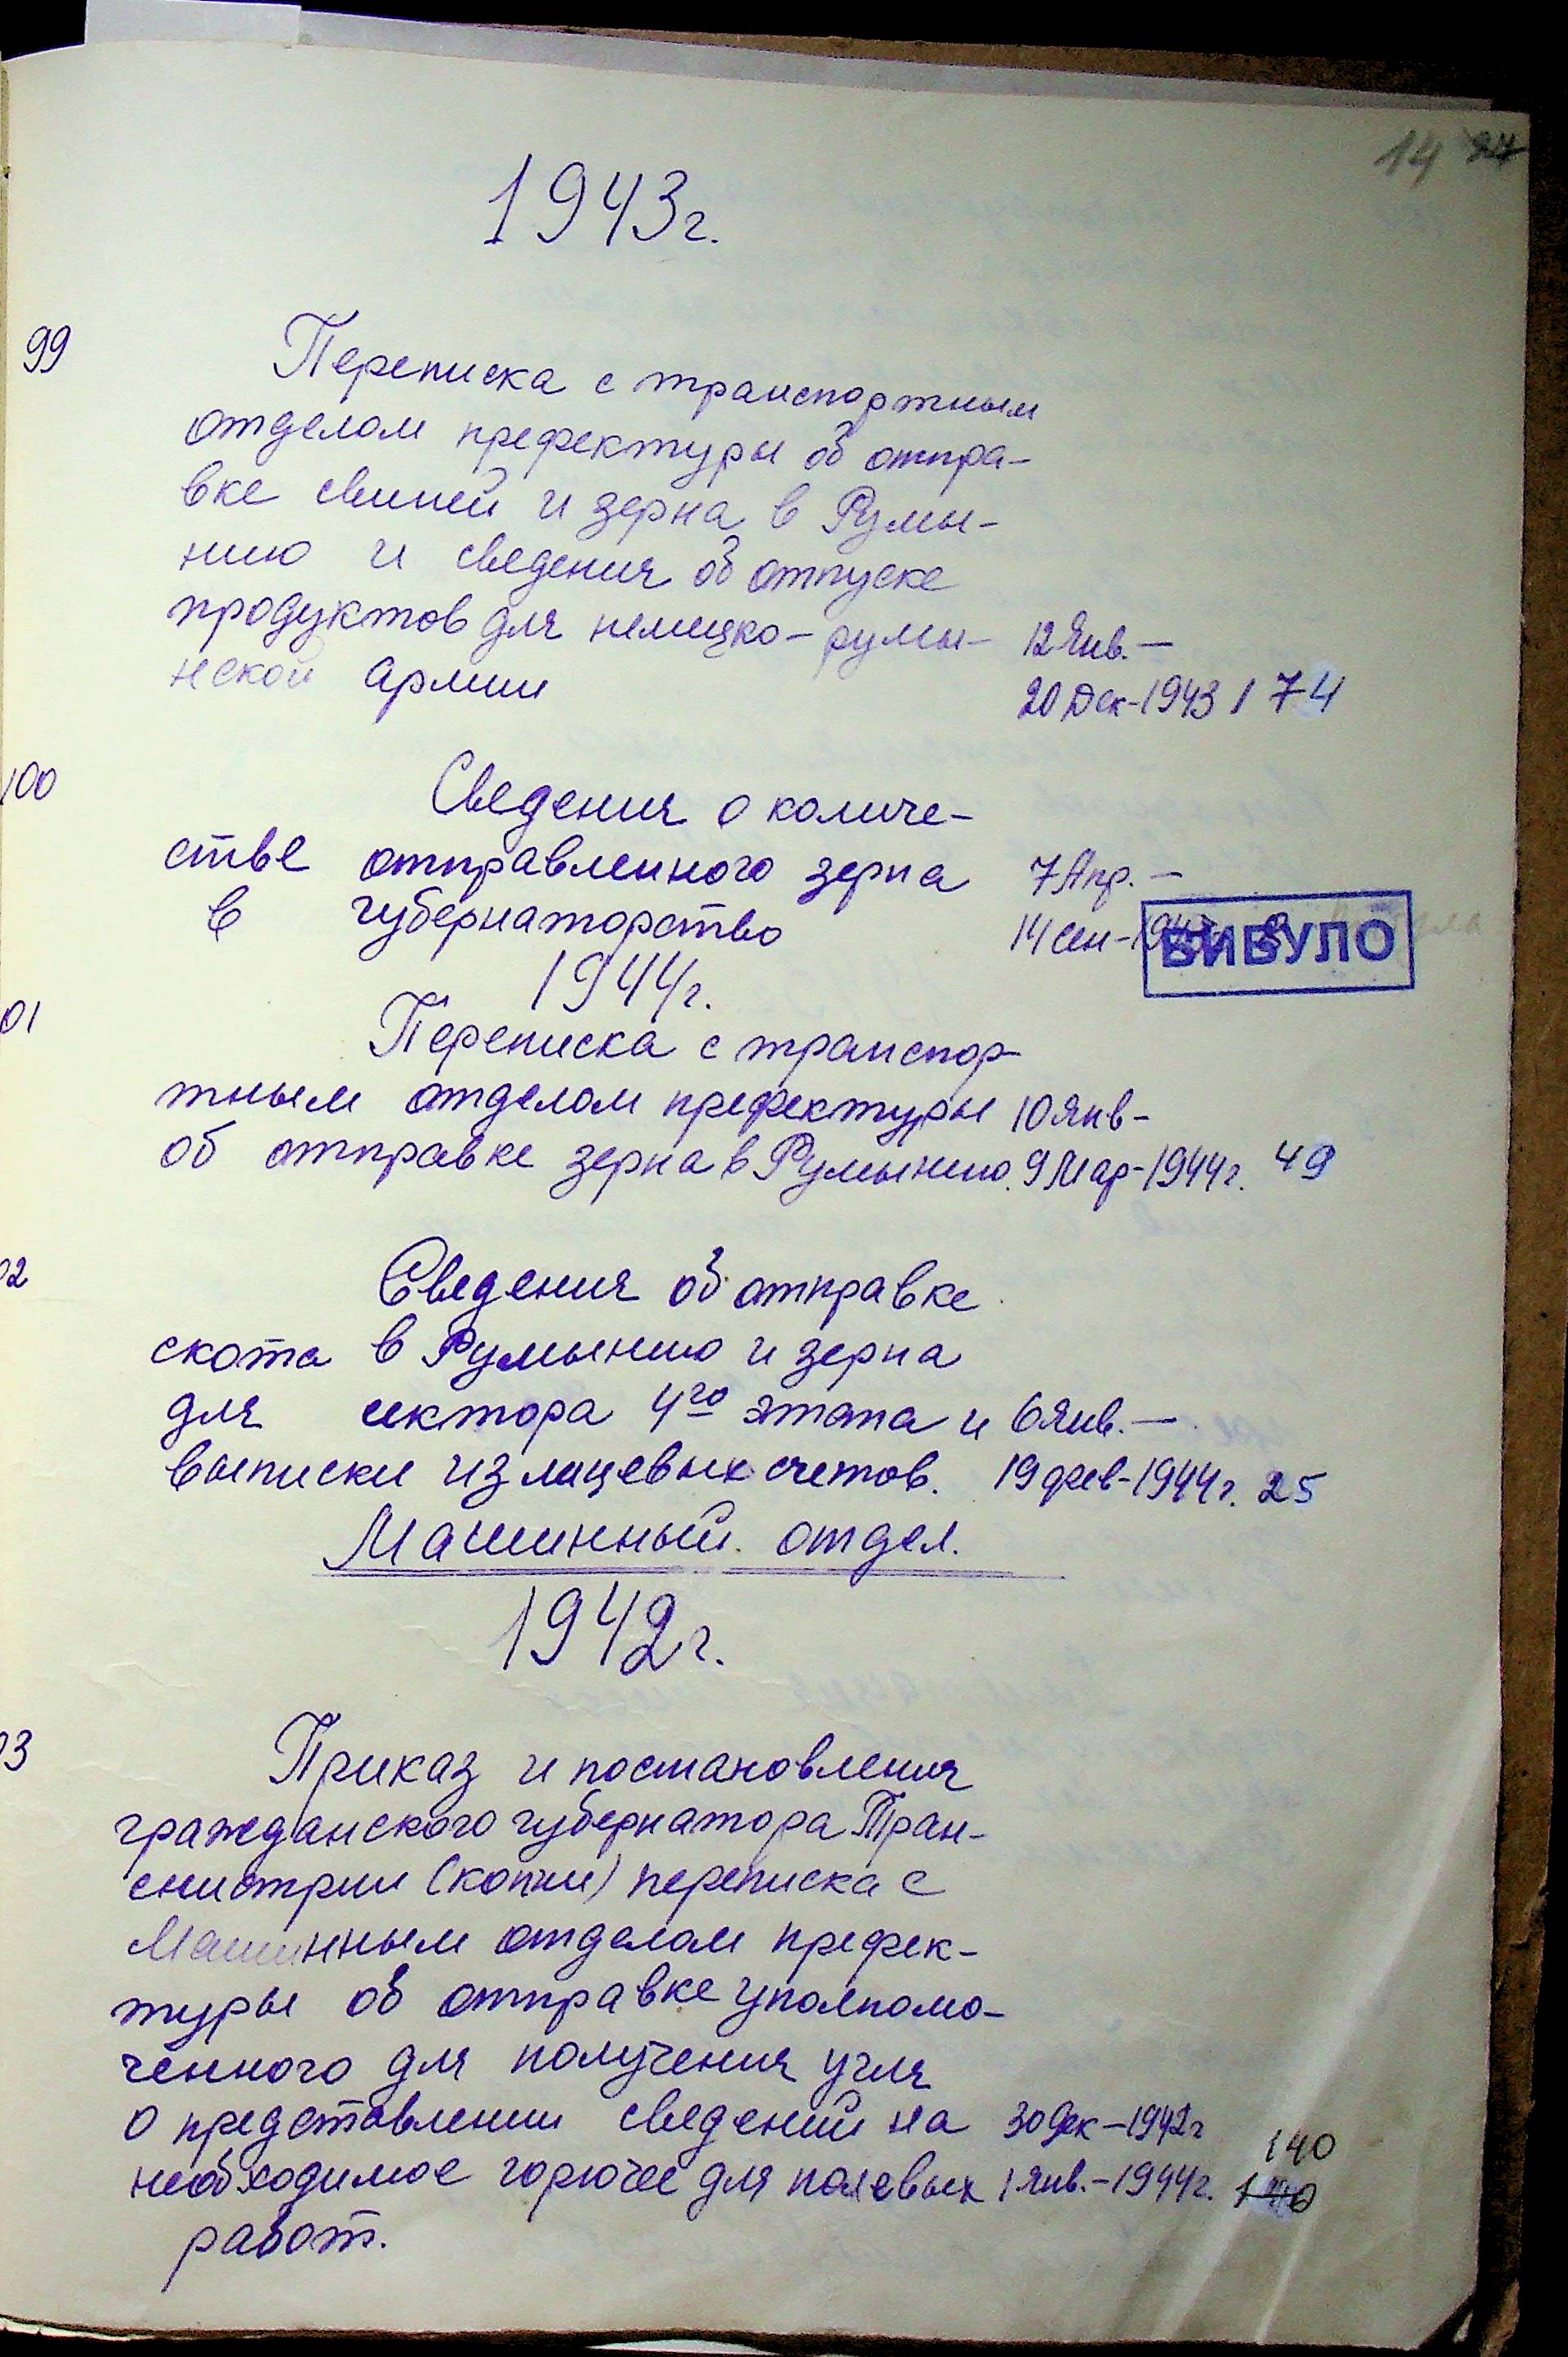 14 27
1943г.
99 Переписка с транспортным
отделом префектуры об отпра-
вке свиней и зерна в Румы-
нию и сведения об отпуске
продуктов для немецко-румы- 12 Янв. —
нской армии 20 Дек-1943 174
100 Сведения о количе-
стве отправленного зерна 7 Апр. —
в губернаторство 14 сен-
БИБУЛО
1944г.
01 Переписка с транспор-
тным отделом префектуры 10 янв-
об отправке зерна в Румынию. 9 Мар-1944г. 49
02 Сведения об отправке
скота в Румынию и зерна
для сектора 4го этапа и 6 янв. —
выписки из лицевых счетов. 19 фев-1944г. 25
Машинный отдел.
1942г.
03 Приказ и постановления
гражданского губернатора Тран-
снистрии (копии) переписка с
Машинным отделом префек-
туры об отправке уполномо-
ченного для получения угля
о представлении сведений на 30 дек-1942г 140
необходимое горючее для полевых 1 янв.-1944г. 140
работ.